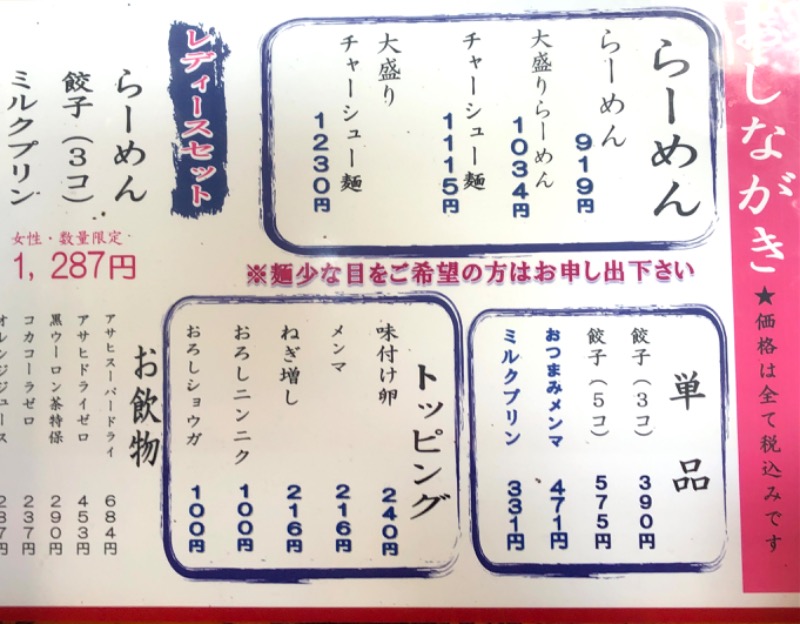 おしながき
★価格は全て税込みです
らーめん
らーめん 919円
大盛りらーめん 1034円
チャーシュー麺 1115円
大盛り
チャーシュー麺 1230円
※麺少な目をご希望の方はお申し出下さい
単品
餃子(3コ) 390円
餃子(5コ) 575円
おつまみメンマ 471円
ミルクプリン 331円
トッピング
味付け卵 240円
メンマ 216円
ねぎ増し 216円
おろしニンニク 100円
おろしショウガ 100円
レディースセット
らーめん
餃子(3コ)
ミルクプリン
女性・数量限定
1,287円
お飲物
アサヒスーパードライ 684円
アサヒドライゼロ 453円
黒ウーロン茶特保 290円
コカコーラゼロ 237円
オレンジジュース 237円